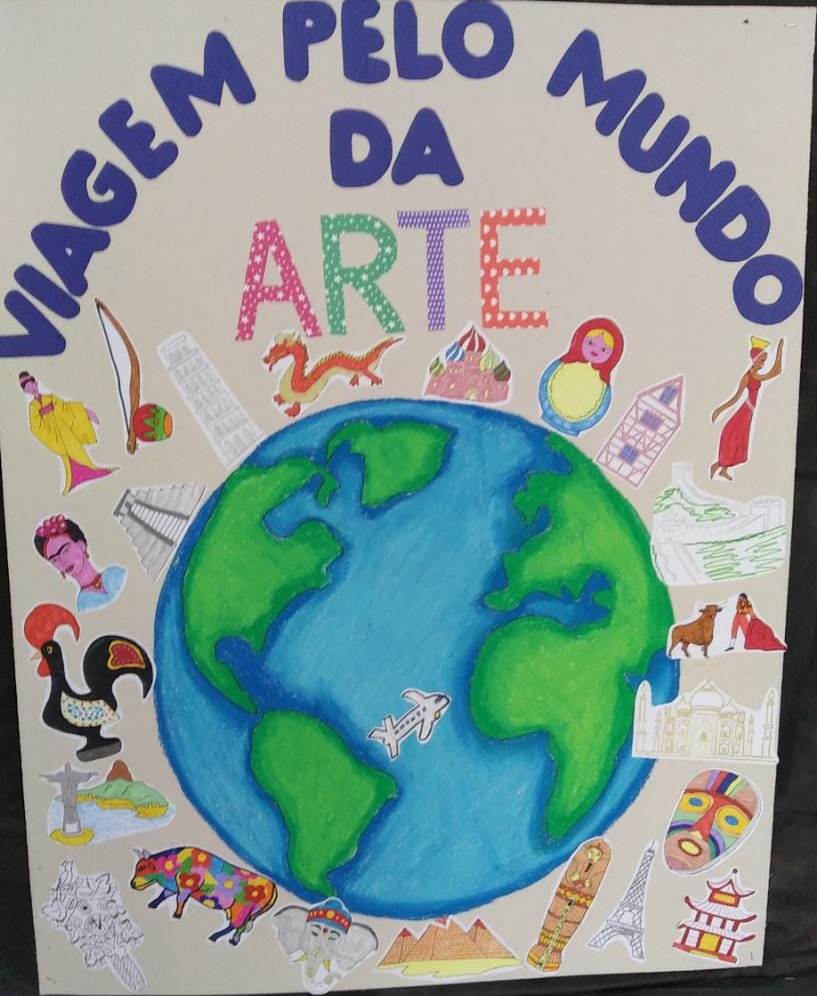 VIAGEM PELO MUNDO
DA
ARTE